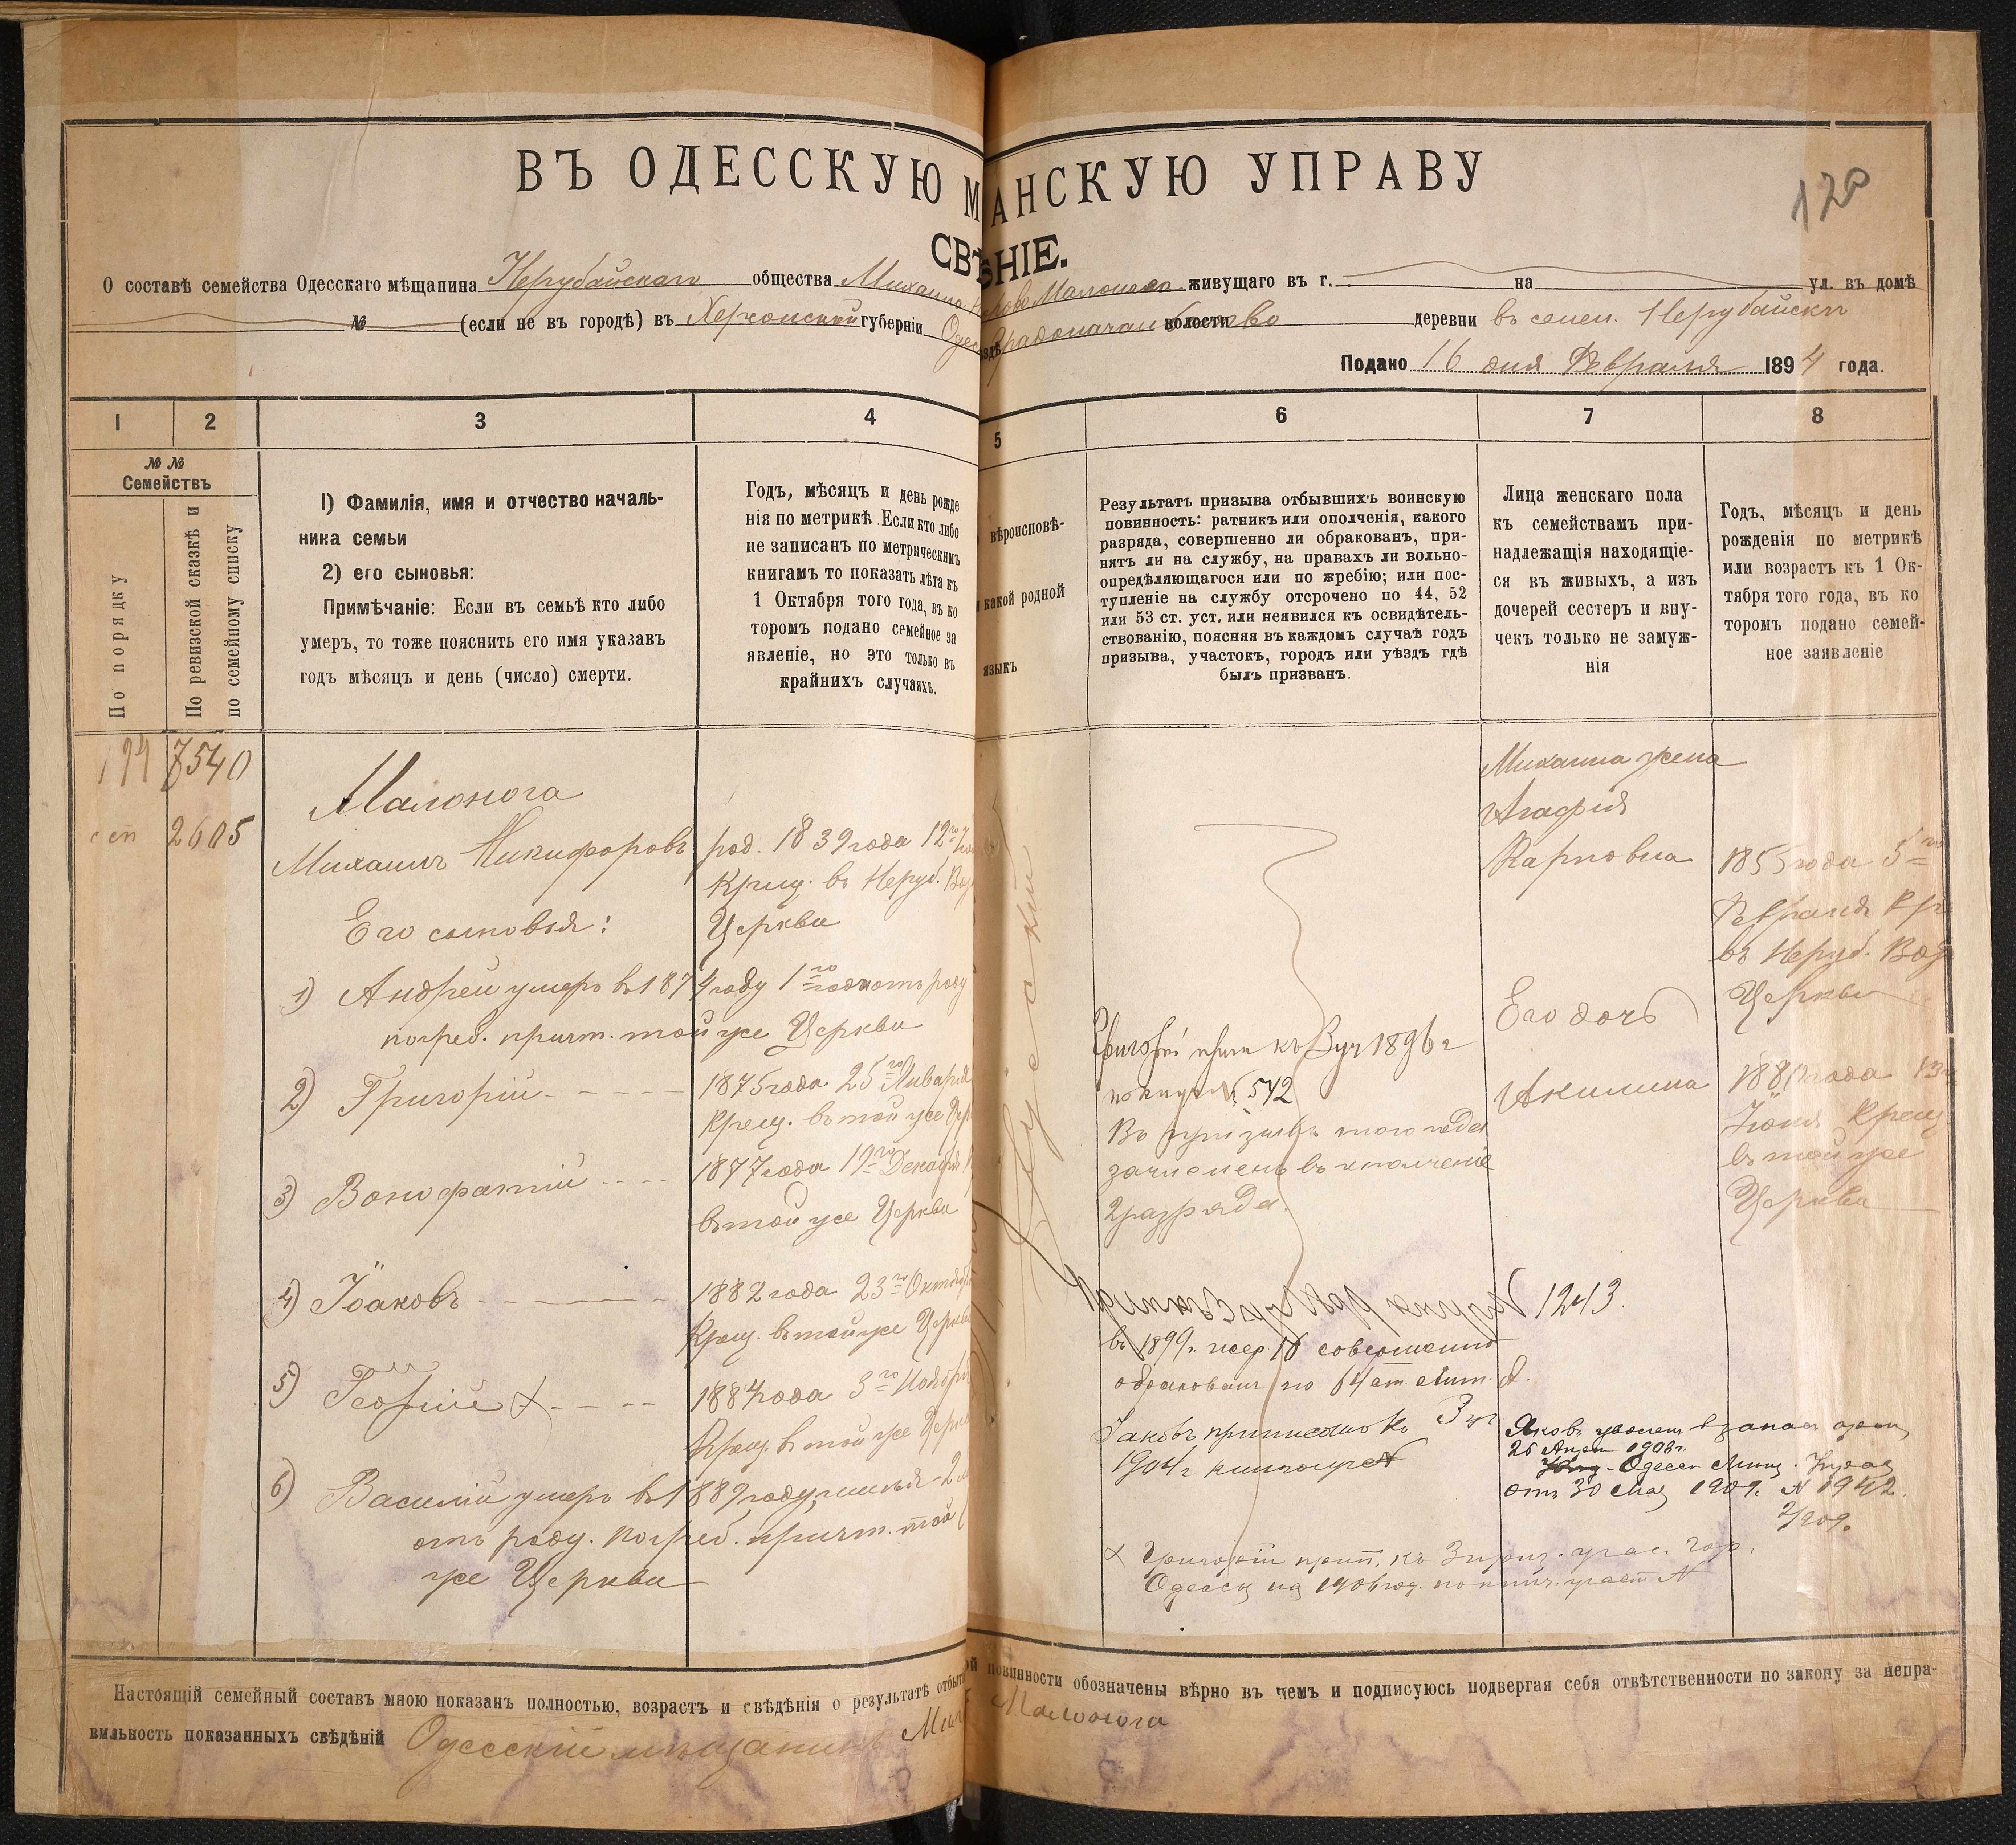 ВЪ ОДЕССКУЮ М АНСКУЮ УПРАВУ
120
СВѢ ѢНІЕ.
О составѣ семейства Одесскаго мѣщанина Нерубайскаго общества Михаила Малонога живущаго въ г. на ул. въ домѣ
№ (если не въ городѣ) въ Херсонской губерніи Одес Градоначальство волости деревни въ селен. Нерубайскъ
Подано 16 дня Февраля 1894 года.
1 2 3 4 5 6 7 8
№ №
Семействъ
По порядку
По ревизской сказкѣ и
по семейному списку
1) Фамилія, имя и отчество началь-
ника семьи
2) его сыновья:
Примѣчаніе: Если въ семьѣ кто либо
умеръ, то тоже пояснить его имя указавъ
годъ мѣсяцъ и день (число) смерти.
Годъ, мѣсяцъ и день рожде
нія по метрикѣ. Если кто либо
не записанъ по метрическимъ
книгамъ то показать лѣта къ
1 Октября того года, въ ко
торомъ подано семейное за
явленіе, но это только въ
крайнихъ случаяхъ.
вѣроисповѣ-
какой родной
языкъ
Результатъ призыва отбывшихъ воинскую
повинность: ратникъ или ополченія, какого
разряда, совершенно ли обракованъ, при-
нятъ ли на службу, на правахъ ли вольно-
опредѣляющагося или по жребію; или пос-
тупленіе на службу отсрочено по 44, 52
или 53 ст. уст. или неявился къ освидѣтель-
ствованію, поясняя въ каждомъ случаѣ годъ
призыва, участокъ, городъ или уѣздъ гдѣ
былъ призванъ.
Лица женскаго пола
къ семействамъ при-
надлежащія находящіе-
ся въ живыхъ, а изъ
дочерей сестеръ и вну-
чекъ только не замуж-
нія
Годъ, мѣсяцъ и день
рожденія по метрикѣ
или возрастъ къ 1 Ок-
тября того года, въ ко
торомъ подано семей-
ное заявленіе
194 7540
2605
Малонога
Михаилъ Никифоровъ
род. 1839 года 12го
Крещ. въ Неруб.
Церкви
Его сыновья:
1) Андрей умеръ въ 1874 году 1го года отъ роду
погреб. причт. той же Церкви
2) Григорій
1875 года 25го Января
Крещ. въ той же
3) Вонифатій
1877 года 19го Декабря
въ той же Церкви
4) Іоаковъ
1882 года 23го Октября
Крещ. въ той же Церкви
5) Георгій
1884 года 3го Ноября
Крещ. въ той же Церкви
6) Василій умеръ въ 1889 году
отъ роду. погреб. причт. той
же Церкви
Русскій
Григорій прип къ 3 уч 1896 г
№ 542
Въ призывъ того года
зачисленъ въ ополченіе
2 разряда.
№ 1243.
въ 1899 г. жер. 18 совершенно
обракованъ по 64 ст. Лит. А.
Іаковъ приписанъ къ 3 уч
1904 г
Григорій прип. къ 3 приз. учас. гор.
Одессы на 1906 год.
Михаила жена
Агафія
Карповна
1855 года 5го
Февраля
въ Неруб.
Церкви
Его дочь
Акилина
Іюня Крещ
въ той же
Церкви
Яковъ уволенъ въ запасъ арміи
26 Апрѣля
Одесск Мѣщ. Управ
отъ 30 Мая 1909. № 1942.
Настоящій семейный составъ мною показанъ полностью, возрастъ и свѣдѣнія о результатѣ отбыт ой повинности обозначены вѣрно въ чемъ и подписуюсь подвергая себя отвѣтственности по закону за непра-
вильность показанныхъ свѣдѣній Одесскій мѣщанинъ Мих Малонога